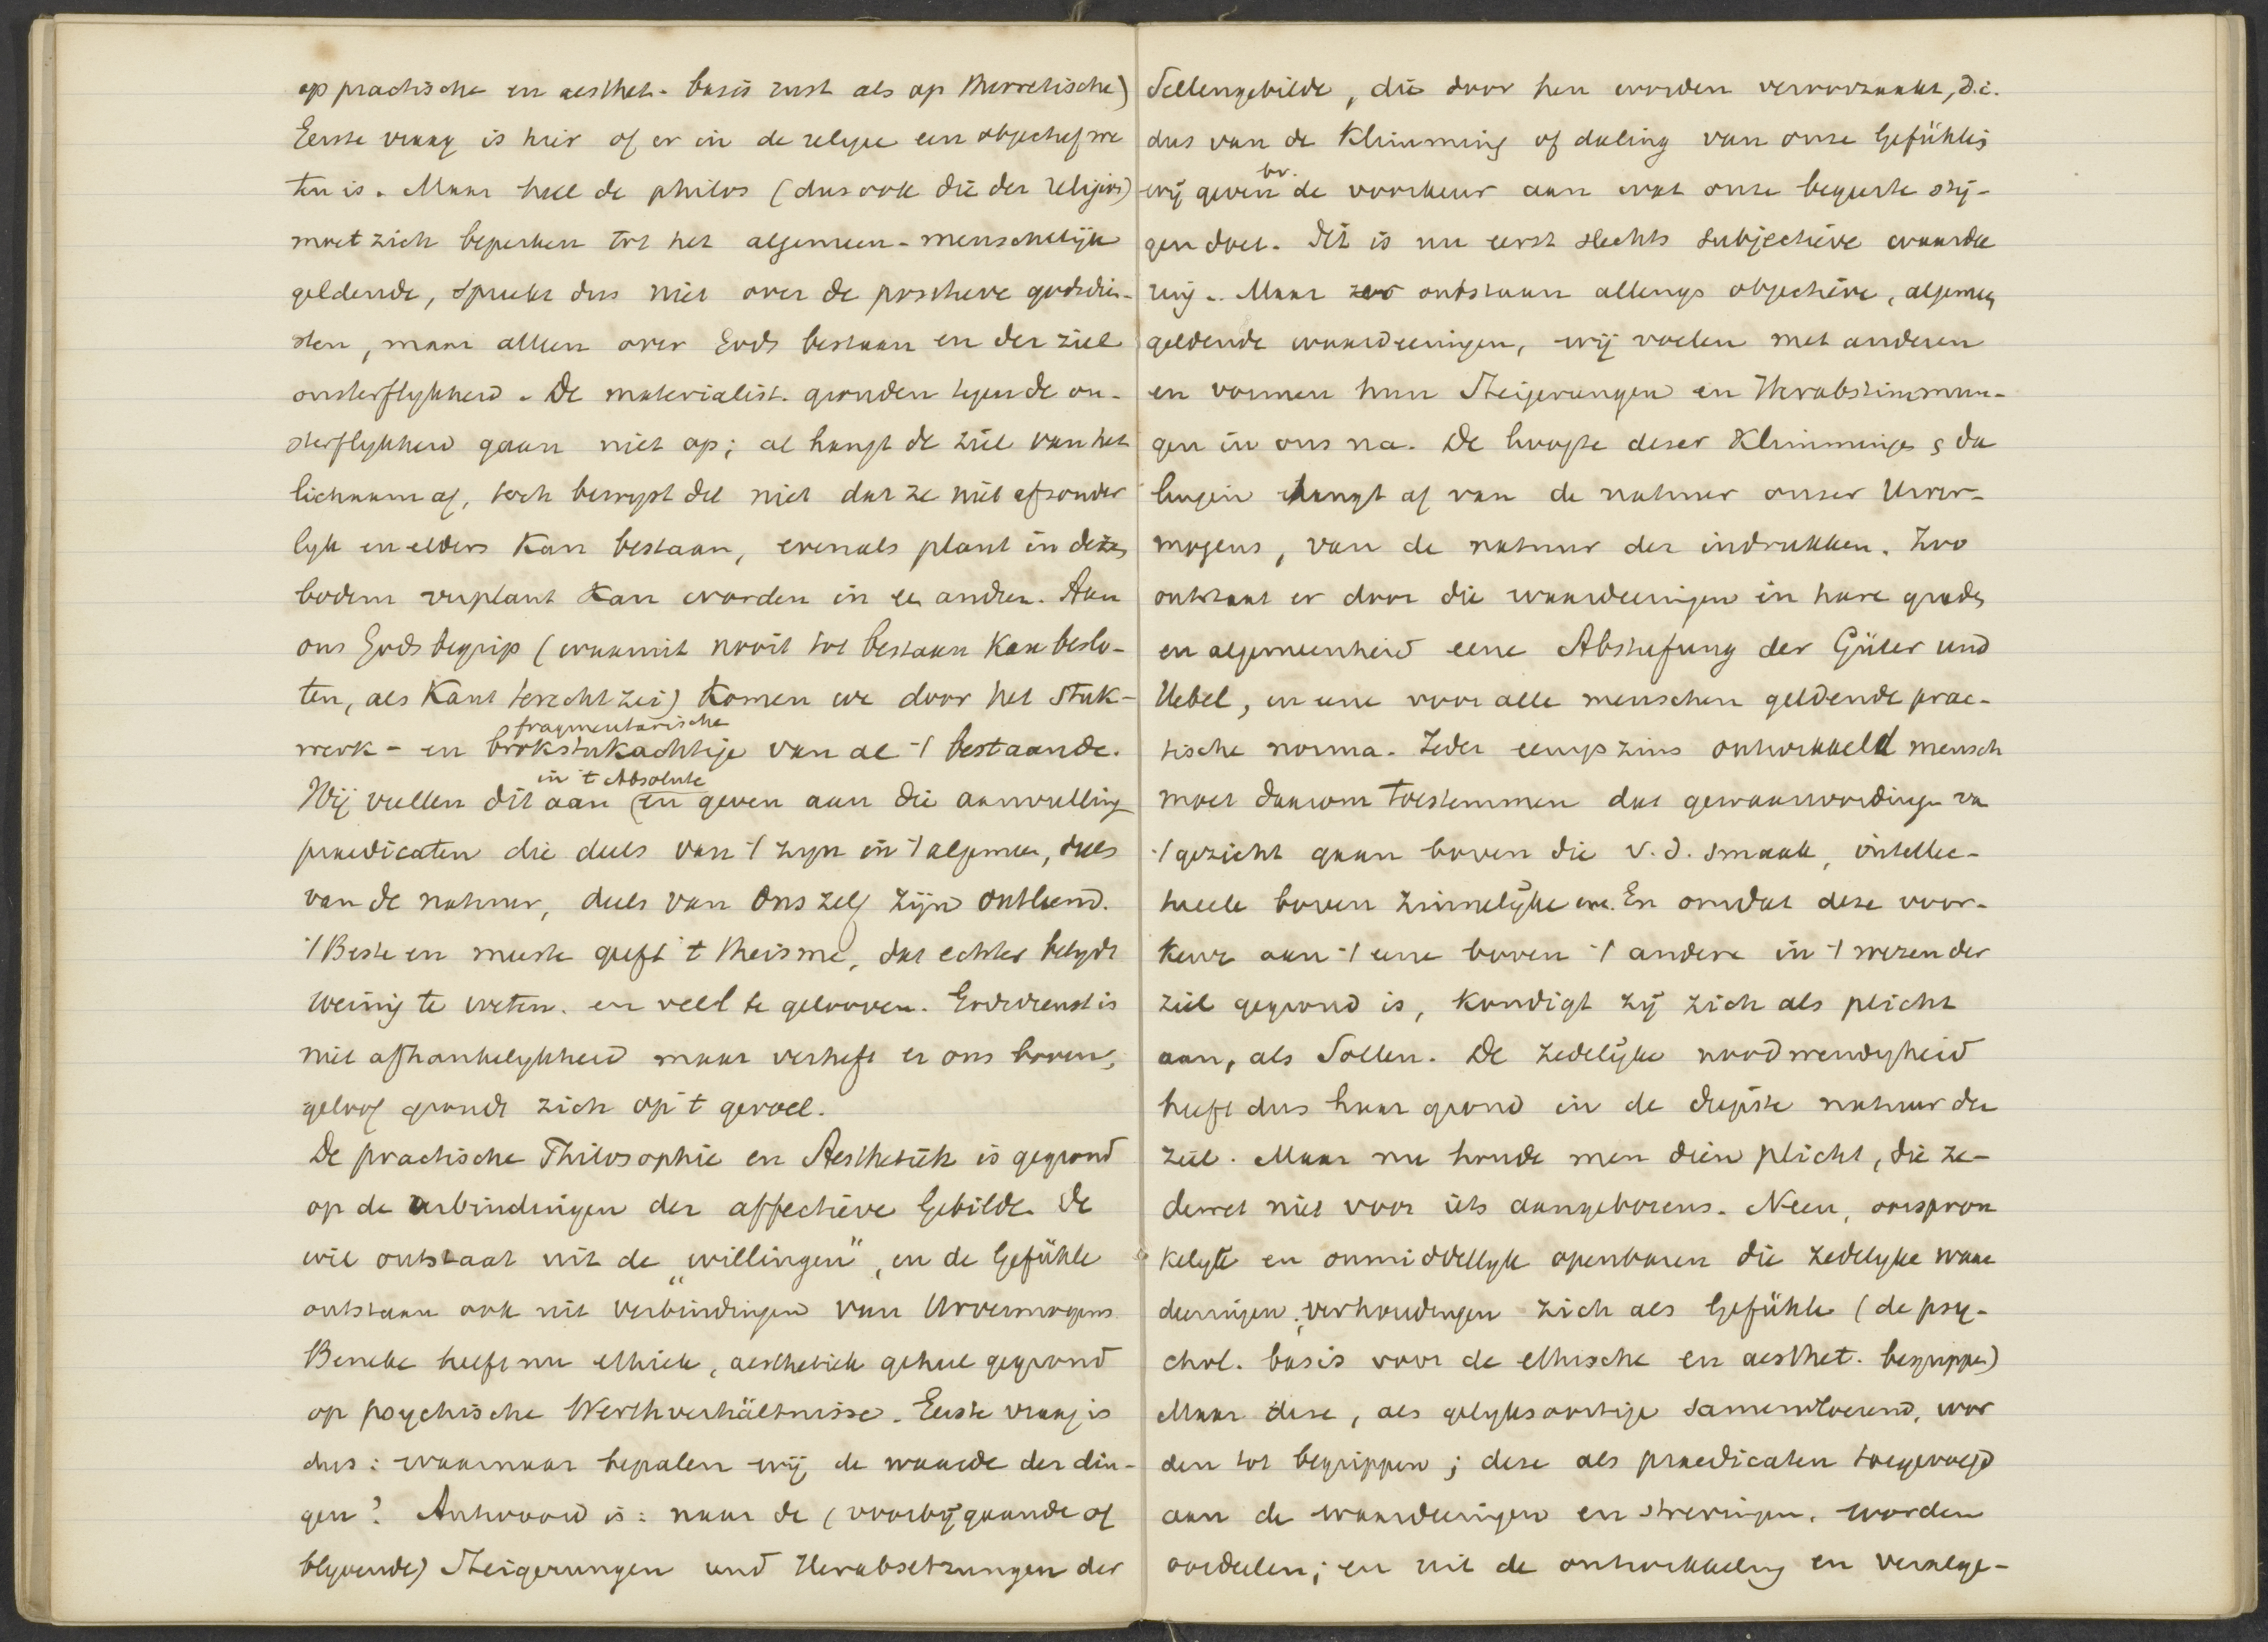 op practische en aesthet. basis rust als op theoretische)
Eerste vraag is hier of er in de religie een objectief we
ten is. Maar heel de philos (dus ook die der religies)
moet zich beperken tot het algemeen-menschelijk
geldende, spreekt dus niet over de positieve godsdien-
sten, maar alleen over Gods bestaan en der ziel
onsterflykheid. De materialist. gronden tegen de on-
sterflykheid gaan niet op; al hangt de ziel van het
lichaam af, toch bewyst dit niet dat ze niet afzonder
lyk en elders kan bestaan, evenals plant in dezen
bodem verplant kan worden in een andren. Aan
ons Godsbegrip (waarmit nooit tot bestaan kan beslo-
ten, als Kant terecht zei) komen we door het stuk-
fragmentarische
werk- en brokstukachtige van al 't bestaande.
in 't Absolute
Wij vullen dit aan (en geven aan die aanvulling
praedicaten die deels van 't zyn in 't algemeen, deels
van de natuur, deels van ons zelf zijn ontleend.
't Beste en meeste geeft 't theisme, dat echter belydt
weinig te weten en veel te gelooven. Godsdienst is
niet afhankelykheid maar verheft er ons boven,
geloof grondt zich op 't gevoel.
De practische Philosophie en Aesthetik is gegrond
op de verbindingen der affectieve Gebilde. De
wil ontstaat uit de „willingen”, en de Gefühle
ontstaan ook uit verbindingen van Urvermogens
Beneke heeft nu ethiek, aesthetiek geheel gegrond
op psychische Werthverhältnisse. Eerste vraag is
dus: waarnaar bepalen wij de waarde der din-
gen? Antwoord is: naar de (voorbijgaande of
blyvende) Steigerungen und Herabsetzungen der
Seelengebilde, die door hen worden veroorzaakt, d.i.
dus van de klimming of daling van onze Gefühle;
bv.
wij geven de voorkeur aan wat onze begeerte stij-
gen doet. Dit is nu eerst slechts subjectieve waarde
ring. Maar zoo ontstaan allengs objectieve, algemeen
geldende waardeeringen, wij voelen met anderen
en vormen hun Steigerungen en Herabstimmun-
gen in ons na. De hoogte dezer klimmingen & da
lingen hangt af van de natuur onzer Urver-
mogens, van de natuur der indrukken. Zoo
ontstaat er door die waardeeringen in hare graden
en algemeenheid eene Abstufung der Güter und
Uebel, en eene voor alle menschen geldende prac-
tische norma. Ieder eenigszins ontwikkeld mensch
moet daarom toestemmen dat gewaarwordingen van
't gezicht gaan boven die v.d. smaak, intellec-
tueele boven zinnelyke enz. En omdat deze voor-
keur aan 't eene boven 't andere in 't wezen der
ziel gegrond is, kondigt zij zich als plicht
aan, als Sollen. De zedelijke noodwendigheid
heeft dus haar grond in de diepste natuur der
ziel. Maar nu houde men dien plicht, die ze-
denwet niet voor iets aangeborens. Neen, oorspron
kelyk en onmiddellyk openbaren die zedelyke waar
deeringen, verhoudingen zich als Gefühle (de psy-
chol. basis voor de ethische en aesthet. begrippen)
Maar deze, als gelyksoortige samenvloeiend, wor
den tot begrippen; deze als praedicaten toegevoegd
aan de waardeeringen en strevingen, worden
oordeelen; en uit de ontwikkeling en veralge-